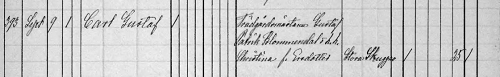 293 Sept 9 / Carl Gustaf / Trädgårdsmästaren Gustaf
Patrik Blommendal o. h.
Christina f. Svedstedt Stora Skuggan / 25 /